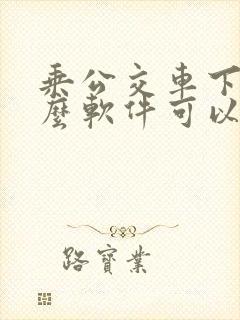 乘公交車下
麼軟件可以
路寶業